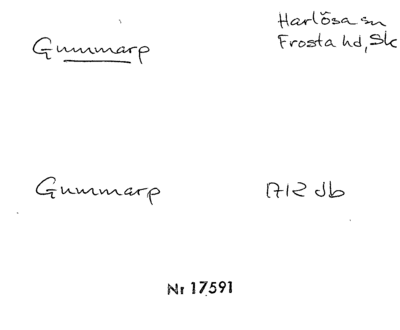 Gummarp
Harlösa sn
Frosta hd, Sk
Gummarp
1712 Jb
Nr 17591